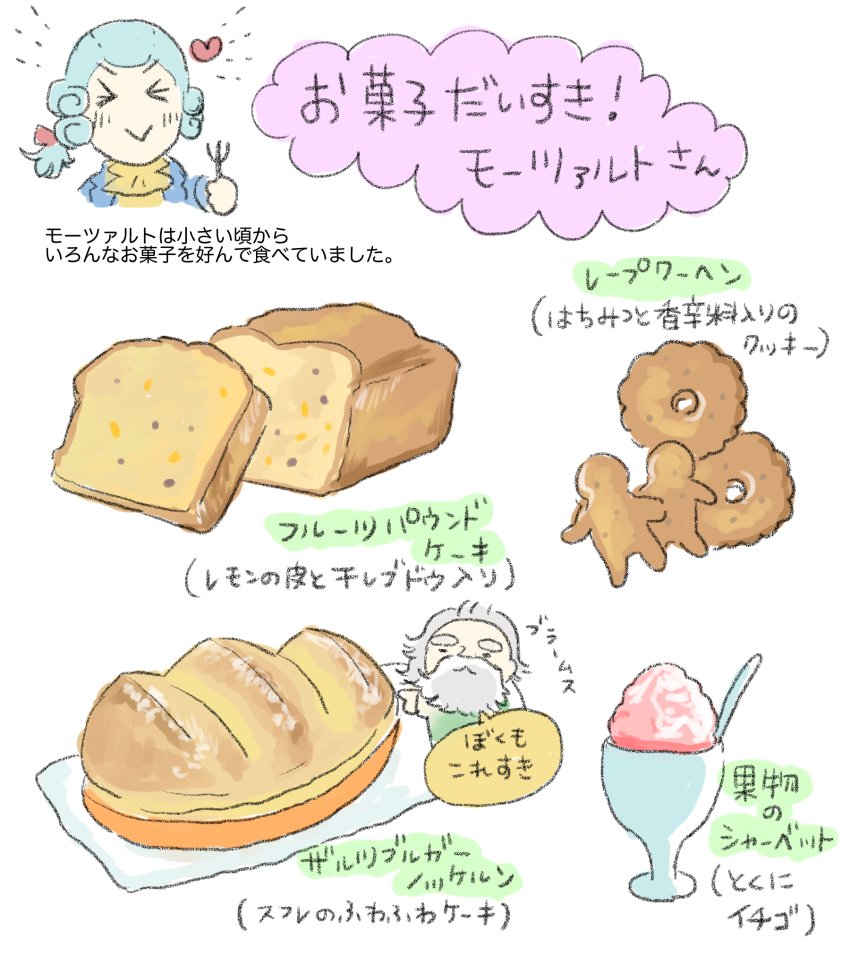 お菓子だいすき!
モーツァルトさん
モーツァルトは小さい頃から
いろんなお菓子を好んで食べていました。
レープクーヘン
(はちみつと香辛料入りの
クッキー)
フルーツパウンド
ケーキ
(レモンの皮と干しブドウ入り)
ブラームス
ぼくも
これすき
ザルツブルガー
ノッケルン
(スフレのふわふわケーキ)
果物
の
シャーベット
(とくに
イチゴ)